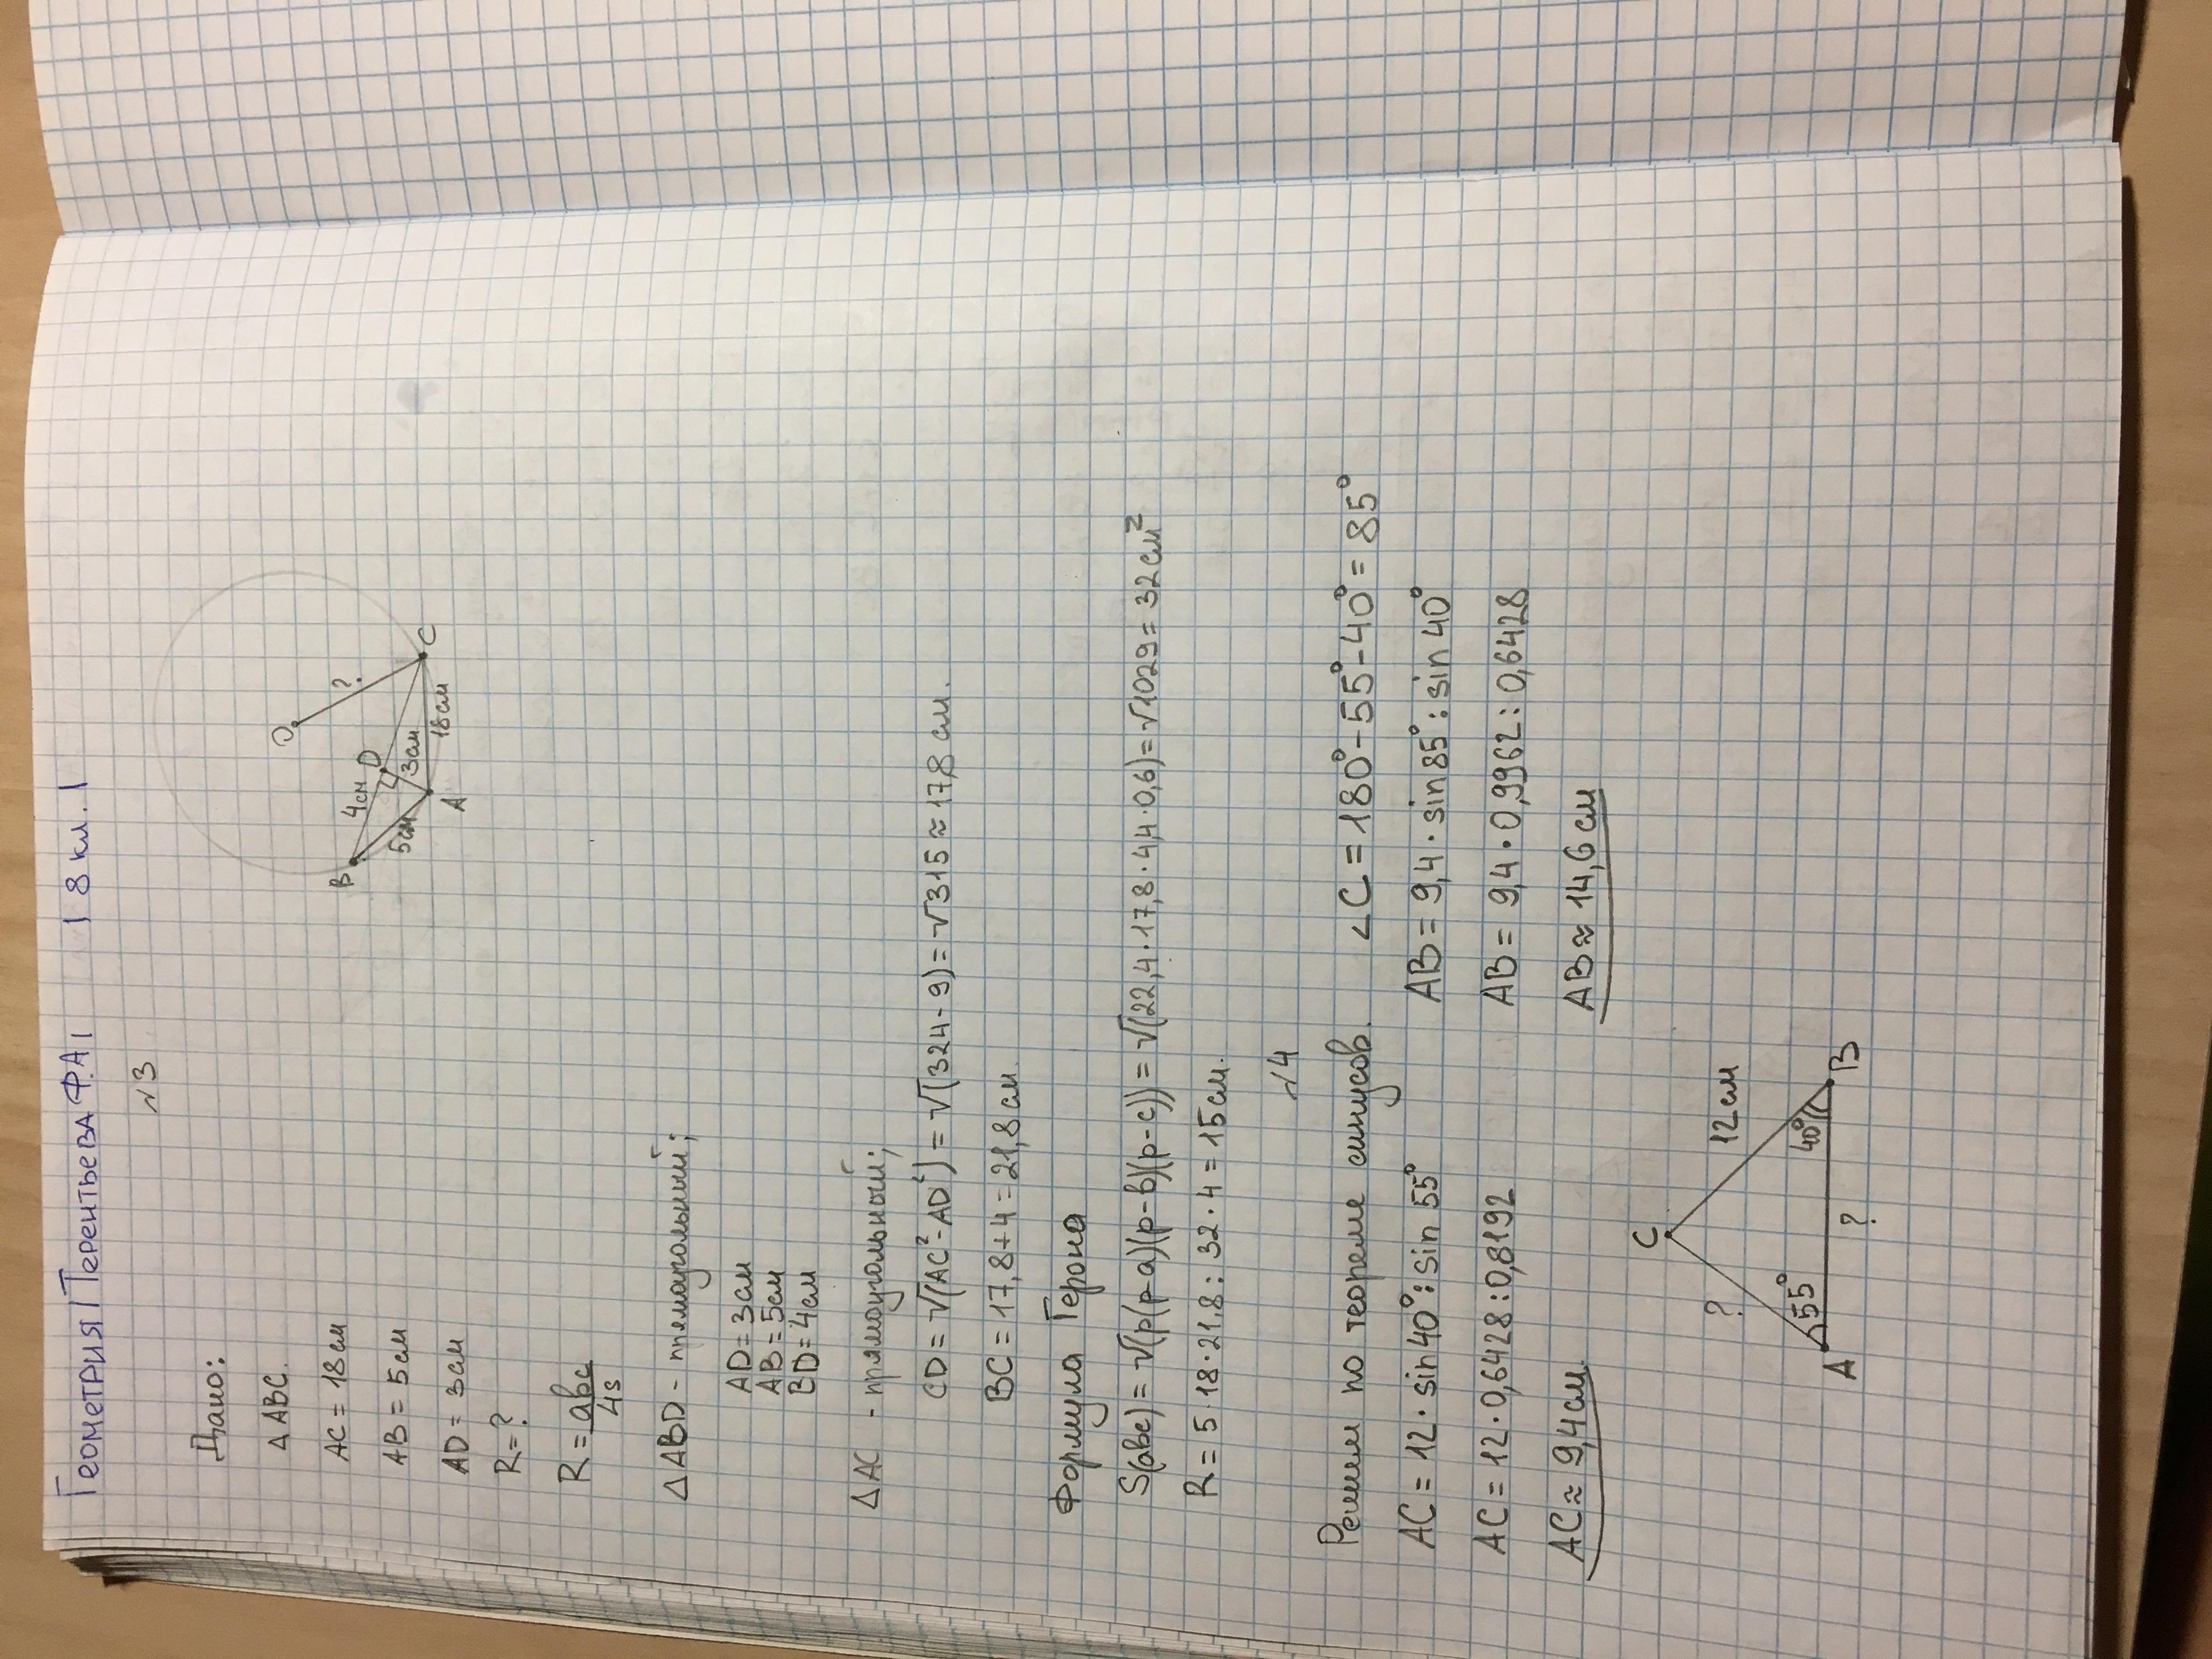 Геометрия | Терентьева Ф.А | | 8 кл. |
№3
Дано:
△ABC.
AC = 18 см
AB = 5 см
AD = 3 см
R = ?
R = abc
4s
B
5см
4см
D
3см
A
18см
C
O
?
△ABD - прямоугольный;
AD = 3см
AB = 5см
BD = 4см
△AC - прямоугольной;
CD = √(AC²-AD²) = √(324-9) = √315 ≈ 17,8 см.
BC = 17,8+4 = 21,8 см.
Формула Герона
S(abc) = √(p(p-a)(p-b)(p-c)) = √(22,4·17,8·4,4·0,6) = √1029 = 32 см²
R = 5·18·21,8 : 32·4 = 15 см.
№4
Решим по теореме синусов. ∠C = 180°-55°-40° = 85°
AC = 12·sin40° : sin 55° AB = 9,4·sin85° : sin 40°
AC = 12·0,6428 : 0,8192 AB = 9,4·0,9962 : 0,6428
AC ≈ 9,4 см. AB ≈ 14,6 см
C
? 12 см
55° 40°
A ? B